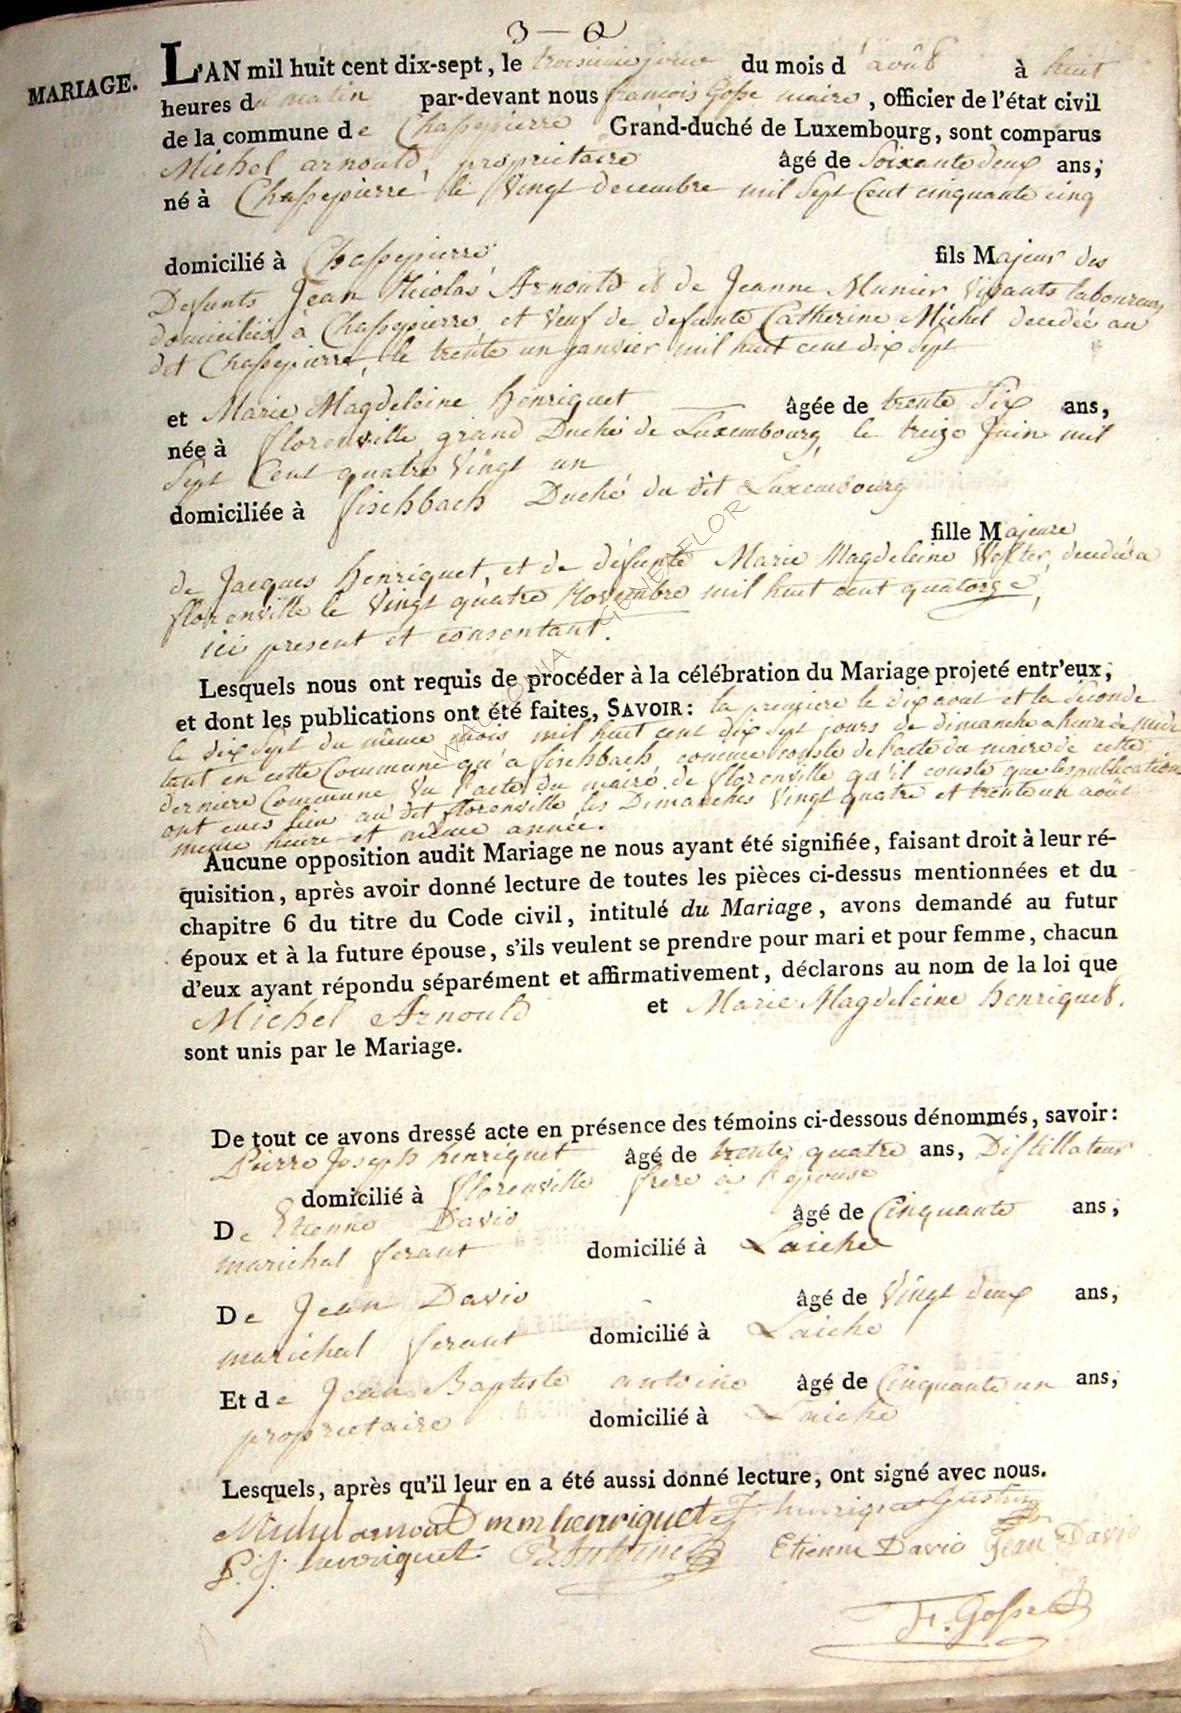 3 — 6
MARIAGE.
L'AN mil huit cent dix-sept, le troisieme jour du mois d'août à huit
heures du matin par-devant nous françois Gosse maire, officier de l'état civil
de la commune de Chassepierre Grand-duché de Luxembourg, sont comparus
Michel arnould, proprietaire âgé de Soixante deux ans;
né à Chassepierre le Vingt decembre mil Sept Cent cinquante cinq
domicilié à Chassepierre fils Majeur des
Defunts Jean Nicolas Arnould et de Jeanne Munier Vivants laboureurs
domiciliés à Chassepierre, et Veuf de defunte Catherine Michel decedée au
dit Chassepierre, le trente un janvier mil huit cent dix sept
et Marie Magdeleine henriquet âgée de trente Six ans,
née à florenville grand Duché de Luxembourg, le treize Juin mil
Sept Cent quatre Vingt un
domiciliée à fischbach Duché du dit Luxembourg
fille Majeure
de Jacques henriquet, et de défunte Marie Magdeleine Welter, decedée a
florenville le Vingt quatre Novembre mil huit cent quatorze,
ici present et consentant.
Lesquels nous ont requis de procéder à la célébration du Mariage projeté entr'eux,
et dont les publications ont été faites, SAVOIR: la premiere le dix aout et la Seconde
le dix Sept du même mois mil huit cent dix sept jours de dimanche a heure de midi
tant en cette Commune qu'a fischbach, comme conste de l'acte du maire de cette
derniere Commune Vu l'acte du maire de florenville qu'il conste que les publications
ont eues lieu au dit florenville les Dimanches Vingt quatre et trente un aout
meme heure et même année.
Aucune opposition audit Mariage ne nous ayant été signifiée, faisant droit à leur ré-
quisition, après avoir donné lecture de toutes les pièces ci-dessus mentionnées et du
chapitre 6 du titre du Code civil, intitulé du Mariage, avons demandé au futur
époux et à la future épouse, s'ils veulent se prendre pour mari et pour femme, chacun
d'eux ayant répondu séparément et affirmativement, déclarons au nom de la loi que
Michel Arnould et Marie Magdeleine henriquet.
sont unis par le Mariage.
De tout ce avons dressé acte en présence des témoins ci-dessous dénommés, savoir:
Pierre Joseph henriquet âgé de trente quatre ans, Distillateur
domicilié à florenville frere a l'epouse
De Etienne David âgé de Cinquante ans;
marichal ferant domicilié à Laiche
De Jean David âgé de Vingt deux ans;
marichal ferant domicilié à Laiche
Et de Jean Baptiste antoine âgé de Cinquante un ans;
proprietaire domicilié à Laiche
Lesquels, après qu'il leur en a été aussi donné lecture, ont signé avec nous.
Michel arnould m m henriquet J henriquet
P. J. henriquet B. Antoine Etienne David Jean David
F. Gosse
WALLONIA GENEAFLOR